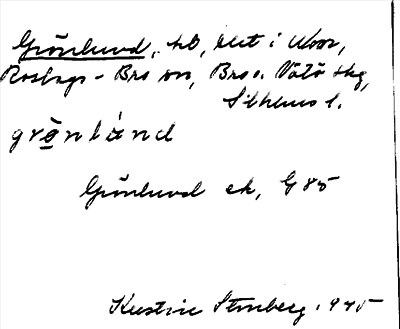 Grönlund, hd, bet i Utvr,
Roslags-Bro sn, Bro o. Vätö skg,
Sthlms l.
grö̀nlánd
Grönlund ek, G 85
Kerstin Stenberg 1945